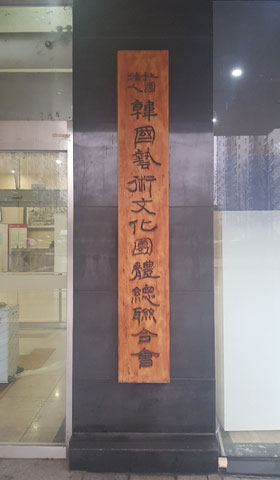 社團法人
韓國藝術文化團體總聯合會